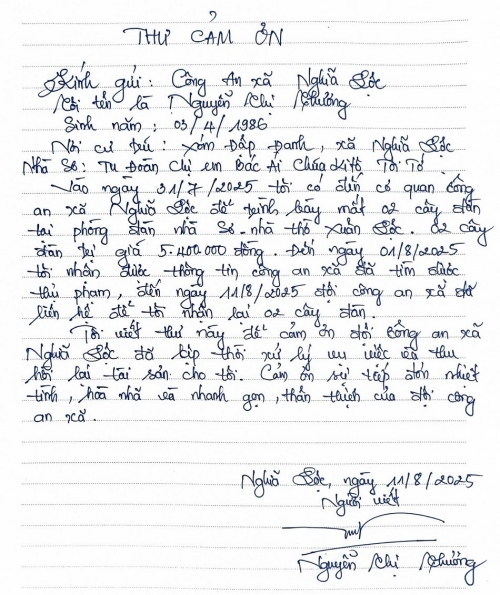 THƯ CẢM ƠN
Kính gửi: Công An xã Nghĩa Lộc
Tôi tên là Nguyễn Thị Thưởng
Sinh năm: 03/4/1986
Nơi cư trú: Xóm Đập Đanh, xã Nghĩa Lộc
Nhà Sơ: Tu Đoàn Chị em Bác Ái Chúa Kitô Tôi Tớ.
Vào ngày 31/7/2025 tôi có đến cơ quan công
an xã Nghĩa Lộc để trình bày mất 02 cây đàn
tại phòng đàn nhà Sơ - nhà thờ Xuân Lộc. 02 cây
đàn trị giá 5.400.000 đồng. Đến ngày 01/8/2025
tôi nhận được thông tin công an xã đã tìm được
thủ phạm, đến ngày 11/8/2025 đội công an xã đã
liên hệ để tôi nhận lại 02 cây đàn.
Tôi viết thư này để cảm ơn đội công an xã
Nghĩa Lộc đã kịp thời xử lý vụ việc và thu
hồi lại tài sản cho tôi. Cảm ơn sự tiếp đón nhiệt
tình, hòa nhã và nhanh gọn, thân thiện của đội công
an xã.
Nghĩa Lộc, ngày 11/8/2025
Người viết
Nguyễn Thị Thưởng